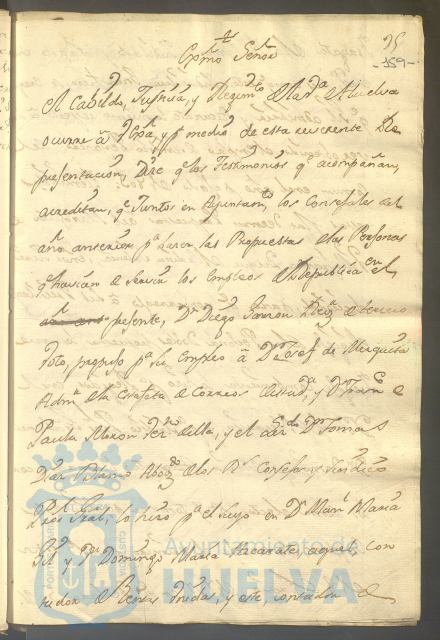 25
-159-
Exmo Señor
El Cabildo, Justicia, y Regimto de la Va de Huelva
ocurre à V Exa, y pr medio de esta reverente Re
presentacion, Dize qe los Testimonios qe acompañan,
acreditan, qe Juntos en Ayuntamto los Consejales del
año anterior pa hacer las Propuestas de las Personas
qe havian de servir los empleos de Republica en el
presente, Dn Diego Regr de tercero
voto, propuso pa su empleo à Dn Josef de Mezquita
Admor de la Estafeta de Correos de esta Va, y Dn Franco de
Paula Moron vezno de ella, y el Ldo Dn Tomas
Diaz Abogdo de los Rs Consejos y Sindico
lo hizo pa el suyo en Dn Manl Maria
y Dn Domingo Maria aquel con
tador de Rentas Unidas, y este, contador de
Ayuntamiento de
HUELVA